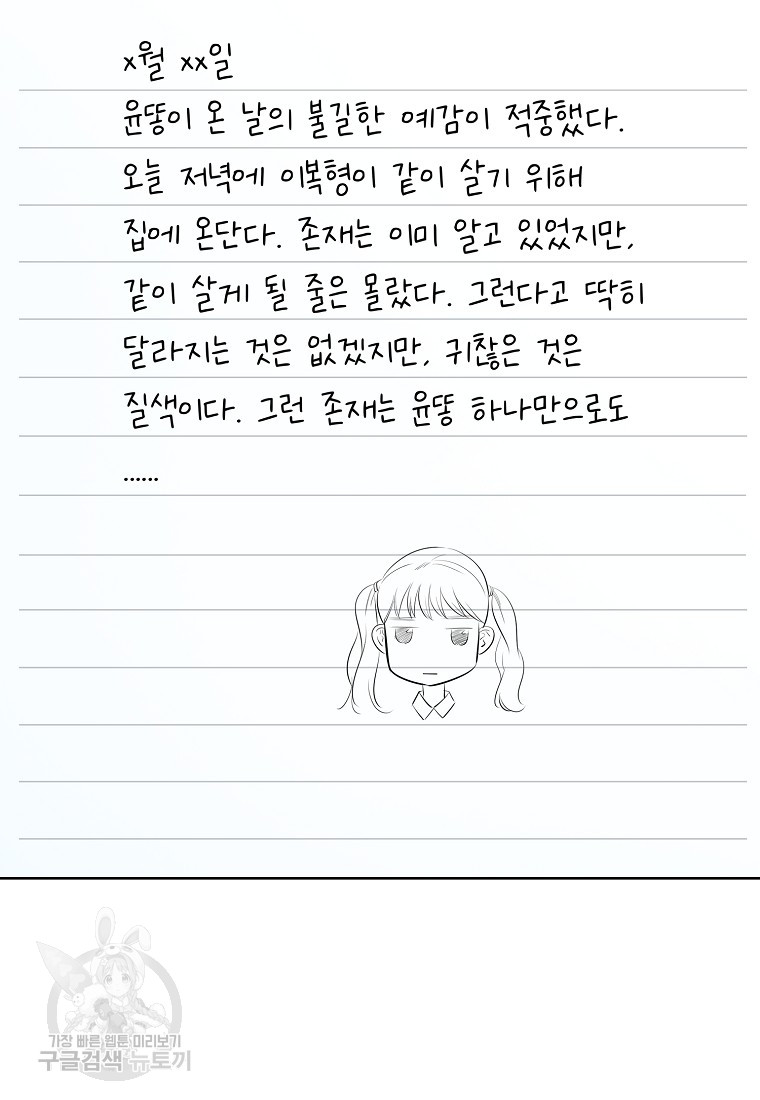 x월 xx일
윤똥이 온 날의 불길한 예감이 적중했다.
오늘 저녁에 이복형이 같이 살기 위해
집에 온단다. 존재는 이미 알고 있었지만,
같이 살게 될 줄은 몰랐다. 그런다고 딱히
달라지는 것은 없겠지만, 귀찮은 것은
질색이다. 그런 존재는 윤똥 하나만으로도
......
가장 빠른 웹툰 미리보기
구글검색 뉴토끼